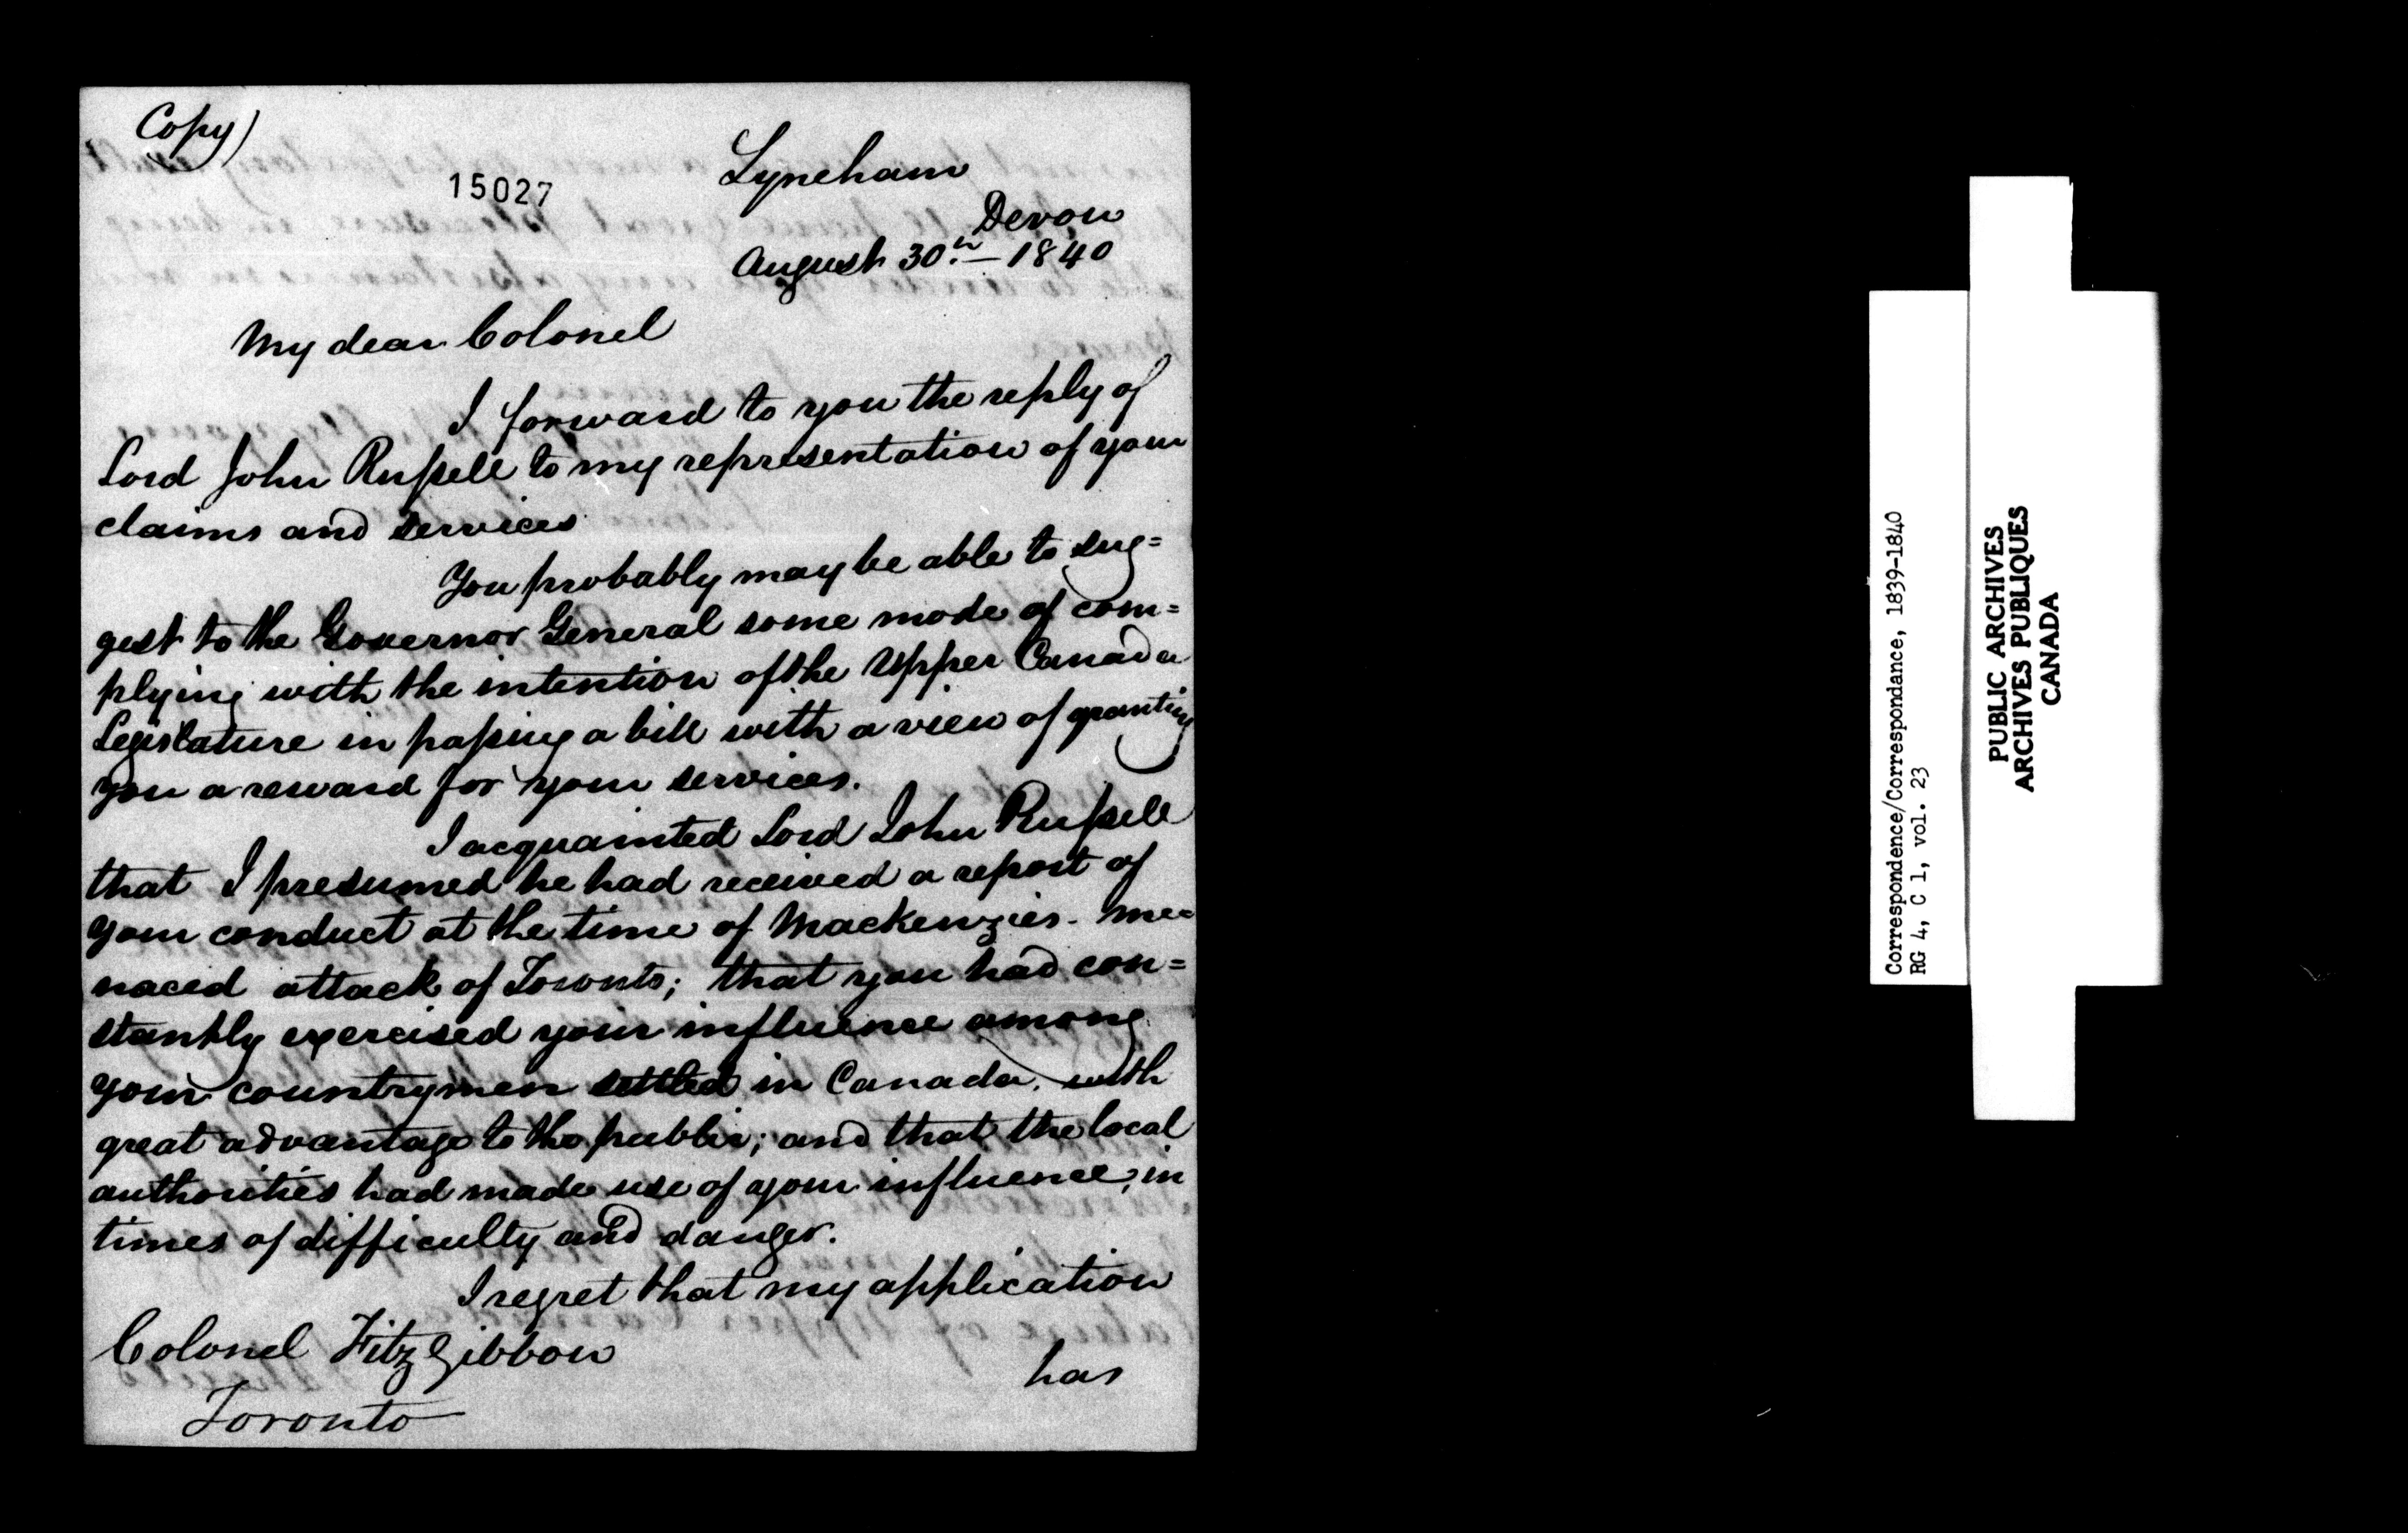 Copy)
15027
Lyneham
Devon
August 30.th — 1840
My dear Colonel
I forward to you the reply of
Lord John Russell to my representation of your
claims and services
You probably may be able to sug=
gest to the Governor General some mode of com=
plying with the intention of the Upper Canada
Legislature in passing a bill with a view of granting
you a reward for your services.
I acquainted Lord John Russell
that I presumed he had received a report of
your conduct at the time of Mackenzies- me=
naced attack of Toronto; that you had con=
stantly exercised your influence among
your countrymen settled in Canada, with
great advantage to the public; and that the local
authorities had made use of your influence, in
times of difficulty and danger.
I regret that my application
has
Colonel FitzGibbon
Toronto
Correspondence/Correspondance, 1839-1840
RG 4, C 1, vol. 23
PUBLIC ARCHIVES
ARCHIVES PUBLIQUES
CANADA